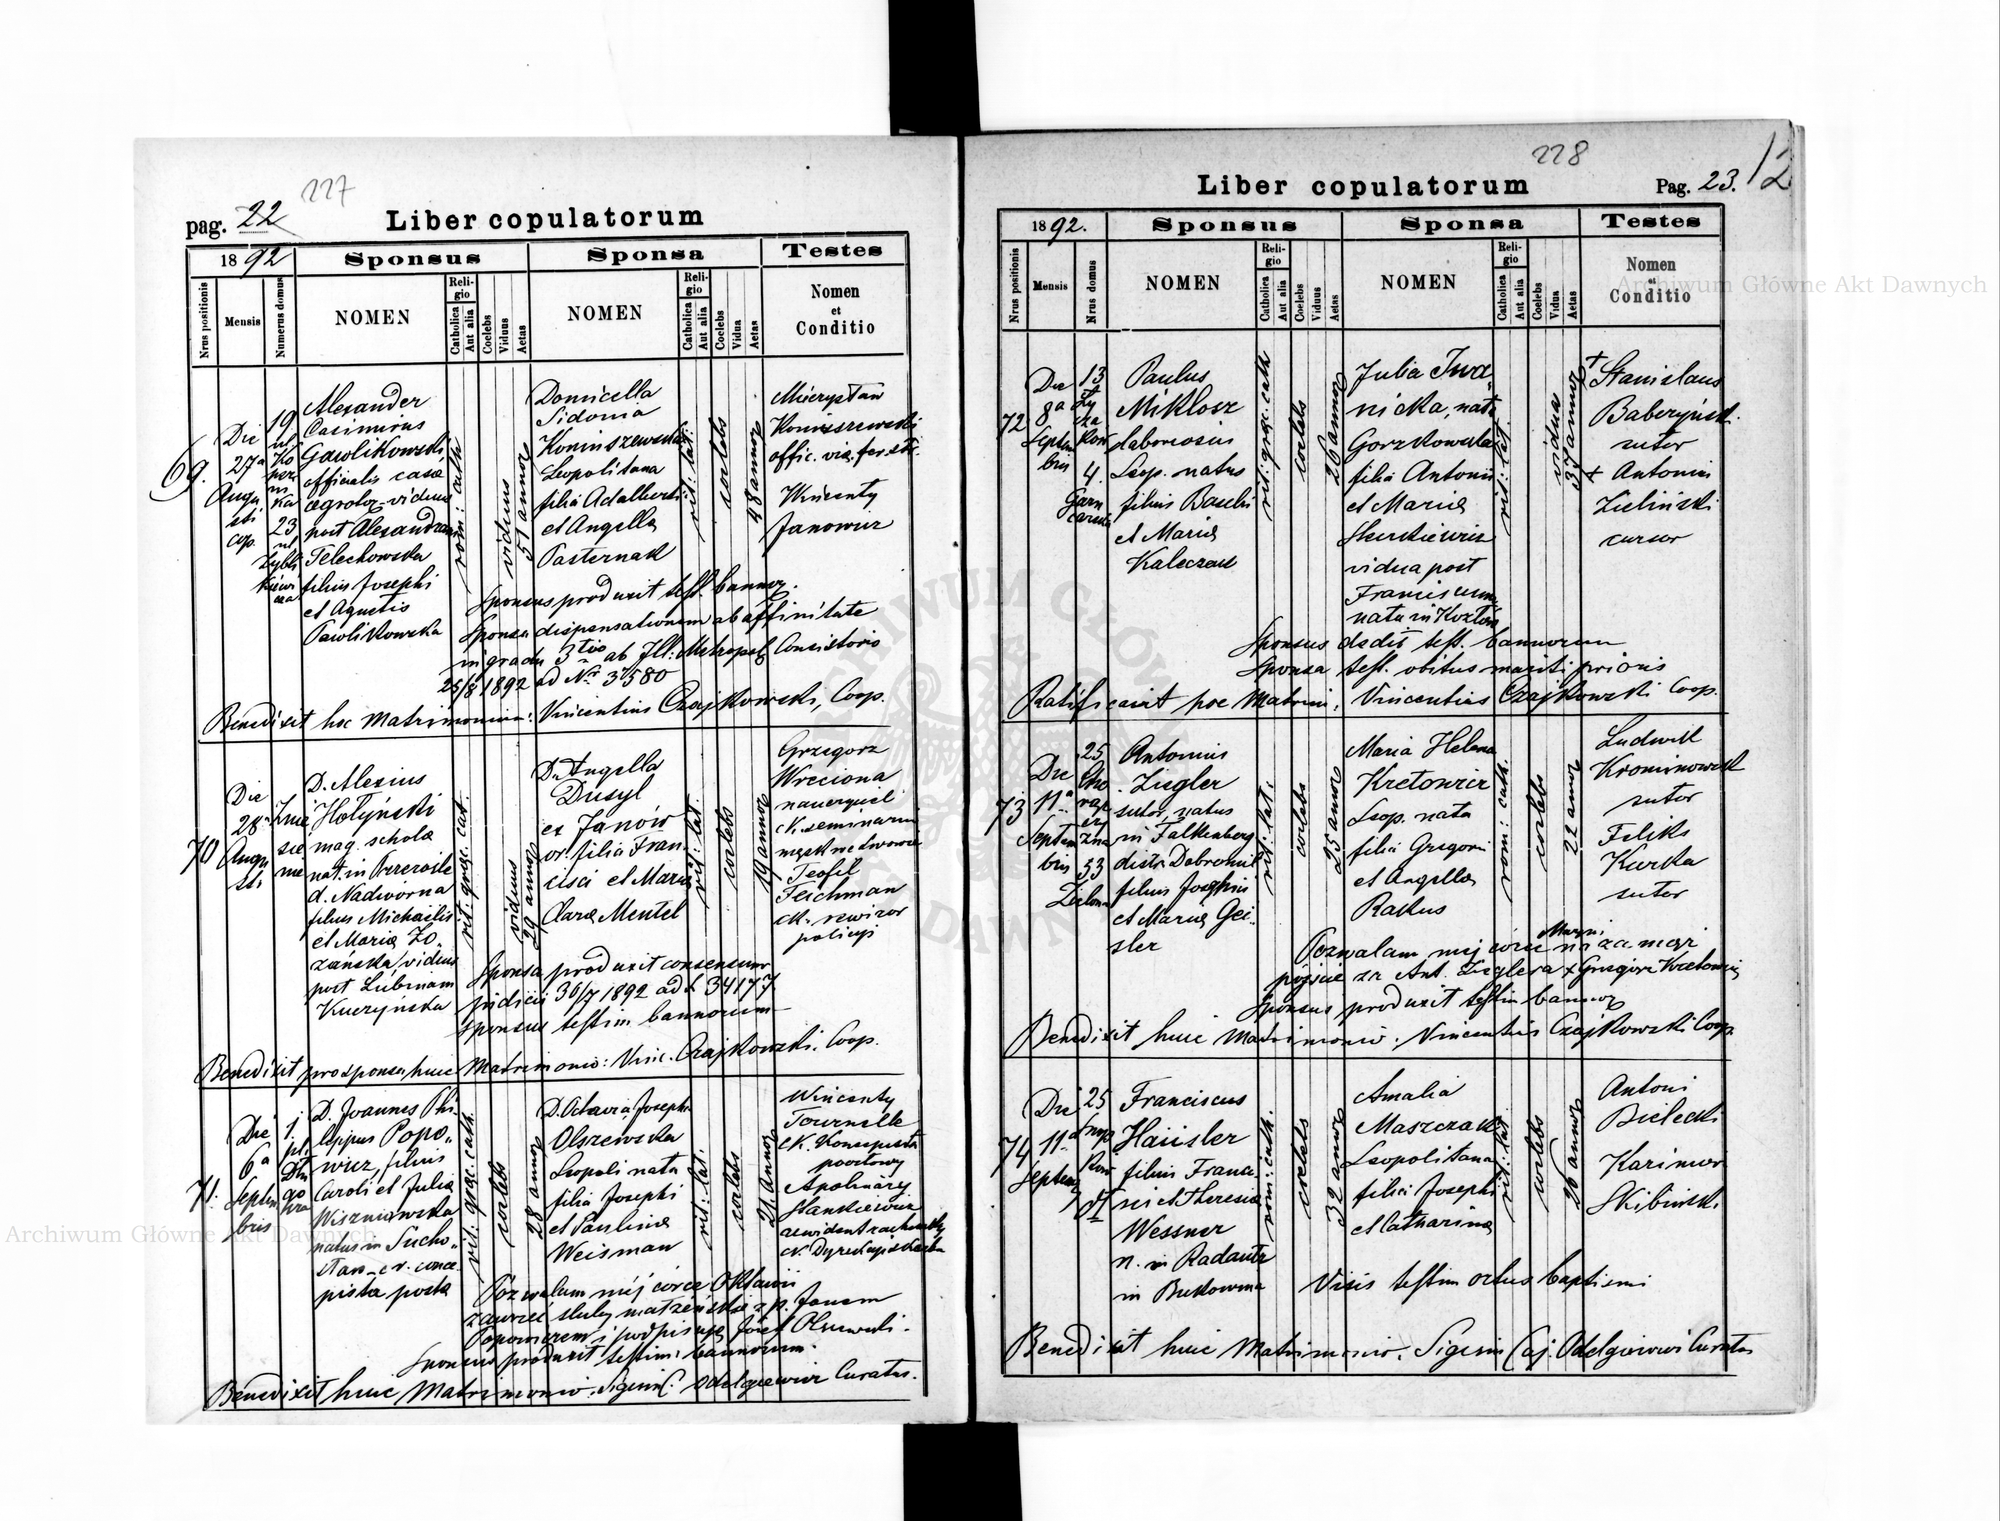 227
pag. 22
Liber copulatorum
1892
Sponsus
Sponsa
Testes
Nrus positionis
Mensis
Numerus domus
NOMEN
Religio
Catholica
Aut alia
Coelebs
Viduus
Aetas
NOMEN
Religio
Catholica
Aut alia
Coelebs
Vidua
Aetas
Nomen
et
Conditio
69.
Die
27a
Augu
sti
cop.
19
ul
Ko
per
ni
ka
23
ul
Zybli
kiewi
cza
Alexander
Casimirus
Gawlikowski,
officialis casae
aegrotor. viduus
post Alexandram
Telechowska
filius Josephi
et Agnetis
Pawlikowska
rom: cath
viduus
51 annor
Domicella
Sidonia
Koniuszewska
Leopolitana
filia Adalberti
et Angella
Pasternak
rit: lat:
coelebs
48 annor
Mieczysław
Koniuszewski
offic. viae fer. str.
Wincenty
Janowicz
Sponsus produxit test. bannor.
Sponsa dispensationem ab affinitate
in gradu 3tio ab Ill: Metropol Consistorio
25/8 1892 ad Nr 3580
Benedixit hoc Matrimonium: Vincentius Czajkowski, Coop.
70
Die
28a
Augu
sti
Znie
sie
nie
D. Alexius
Hołyński
mag. schola
nat. in Przerośle
d. Nadwórna
filius Michaelis
et Maria Zo-
zańska, viduus
post Lubinam
Kuczyńska
rit: graec. cat.
viduus
29 annor
D. Angella
Dusyl
ex Janów
or. filia Fran-
cisci et Maria
Clara Mentel
rit: lat.
coelebs
19 annor
Grzegorz
Wreciona
nauczyciel
ck. seminarium
męsk. we Lwowie
Teofil
Teichman
ck. rewizor
policyi
Sponsa produxit consensum
judicii 30/7 1892 ad L 34177
Sponsus testim bannorum
Benedixit pro sponsa huic Matrimonio: Vinc. Czajkowski. Coop.
71.
Die
6a
Septem
bris
1.
pl.
Dłu
go
sza
D. Joannes Phi-
lippus Popo-
wicz, filius
Caroli et Julia
Wiszniowska
natus in Sucho-
staw c. r. conce-
pista posta
rit: graec. cath.
coelebs
28 annor
D. Octavia Josepha
Olszewska
Leopoli nata
filia Josephi
et Paulina
Weisman
rit: lat.
coelebs
21 annor
Wincenty
Tournelle
ck. Koncepista
pocztowy
Apolinary
Stankiewicz
rewident rachunkowy
ck. Dyrekcyi skarbu
Pozwalam mej córce Oktawii
zawrzeć śluby małżeńskie z p. Janem
Popowiczem i podpisuję Józef Olszewski.
Sponsus produxit testim: bannorum.
Benedixit huic Matrimonio: Sigism C. Odelgiewicz Curatus.
228
12
Liber copulatorum
Pag. 23.
1892.
Sponsus
Sponsa
Testes
Nrus positionis
Mensis
Nrus domus
NOMEN
Religio
Catholica
Aut alia
Coelebs
Viduus
Aetas
NOMEN
Religio
Catholica
Aut alia
Coelebs
Vidua
Aetas
Nomen
et
Conditio
72
Die
8a
Septem
bris
13
Ły
cza
kow
4.
Garn
carska
Paulus
Miklosz
laboriosus
Leop. natus
filius Basilii
et Maria
Kaleczak
rit: graec. cath
coelebs
26 annor
Julia Iwa-
nicka, nata
Gorzkowska
filia Antonii
et Maria
Skurkiewicz
vidua post
Franciscum
nata in Kozłów
rit: lat.
vidua
37 annor
+ Stanislaus
Baberzyński.
sutor
+ Antonius
Zieliński
cursor
Sponsus dedit test. bannorum
Sponsa test. obitus mariti prioris
Ratificavit hoc Matrim: Vincentius Czajkowski Coop.
73
Die
11a
Septem
bris
25
Cho
rąż
czy
zna
53
Zielona
Antonius
Ziegler
sutor, natus
in Falkenberg
distr. Dobromil
filius Josephus
et Maria Gei-
sler
rit: lat.
coelebs
25 annor
Maria Helena
Kretowicz
Leop. nata
filia Gregorii
et Angella
Rakus
rom: cath.
coelebs
22 annor
Ludwik
Krominowski
sutor
Feliks
Kurka
sutor
Pozwalam mej córce Maryi na za mąż
pójście za Ant. Zieglera + Grzegórz Kretowicz
Sponsus produxit testim bannor
Benedixit huic Matrimonio. Vincentius Czajkowski Coop.
74
Die
11a
Septem
25
Łycza
kow
st
Franciscus
Häusler
filius Franci-
sci et Theresia
Wessner
n. in Radautz
in Bukowina
rom: cath.
coelebs
32 annor
Amalia
Maszczak
Leopolitana
filia Josephi
et Catharina
rit: lat
coelebs
26 annor
Antoni
Bielecki
Kazimierz
Skibiński
Visis testim ortus baptismi
Benedixit huic Matrimonio. Sigism Caj. Odelgiewicz Curatus
Archiwum Główne Akt Dawnych
Archiwum Główne Akt Dawnych
ARCHIWUM GŁÓWNE AKT DAWNYCH